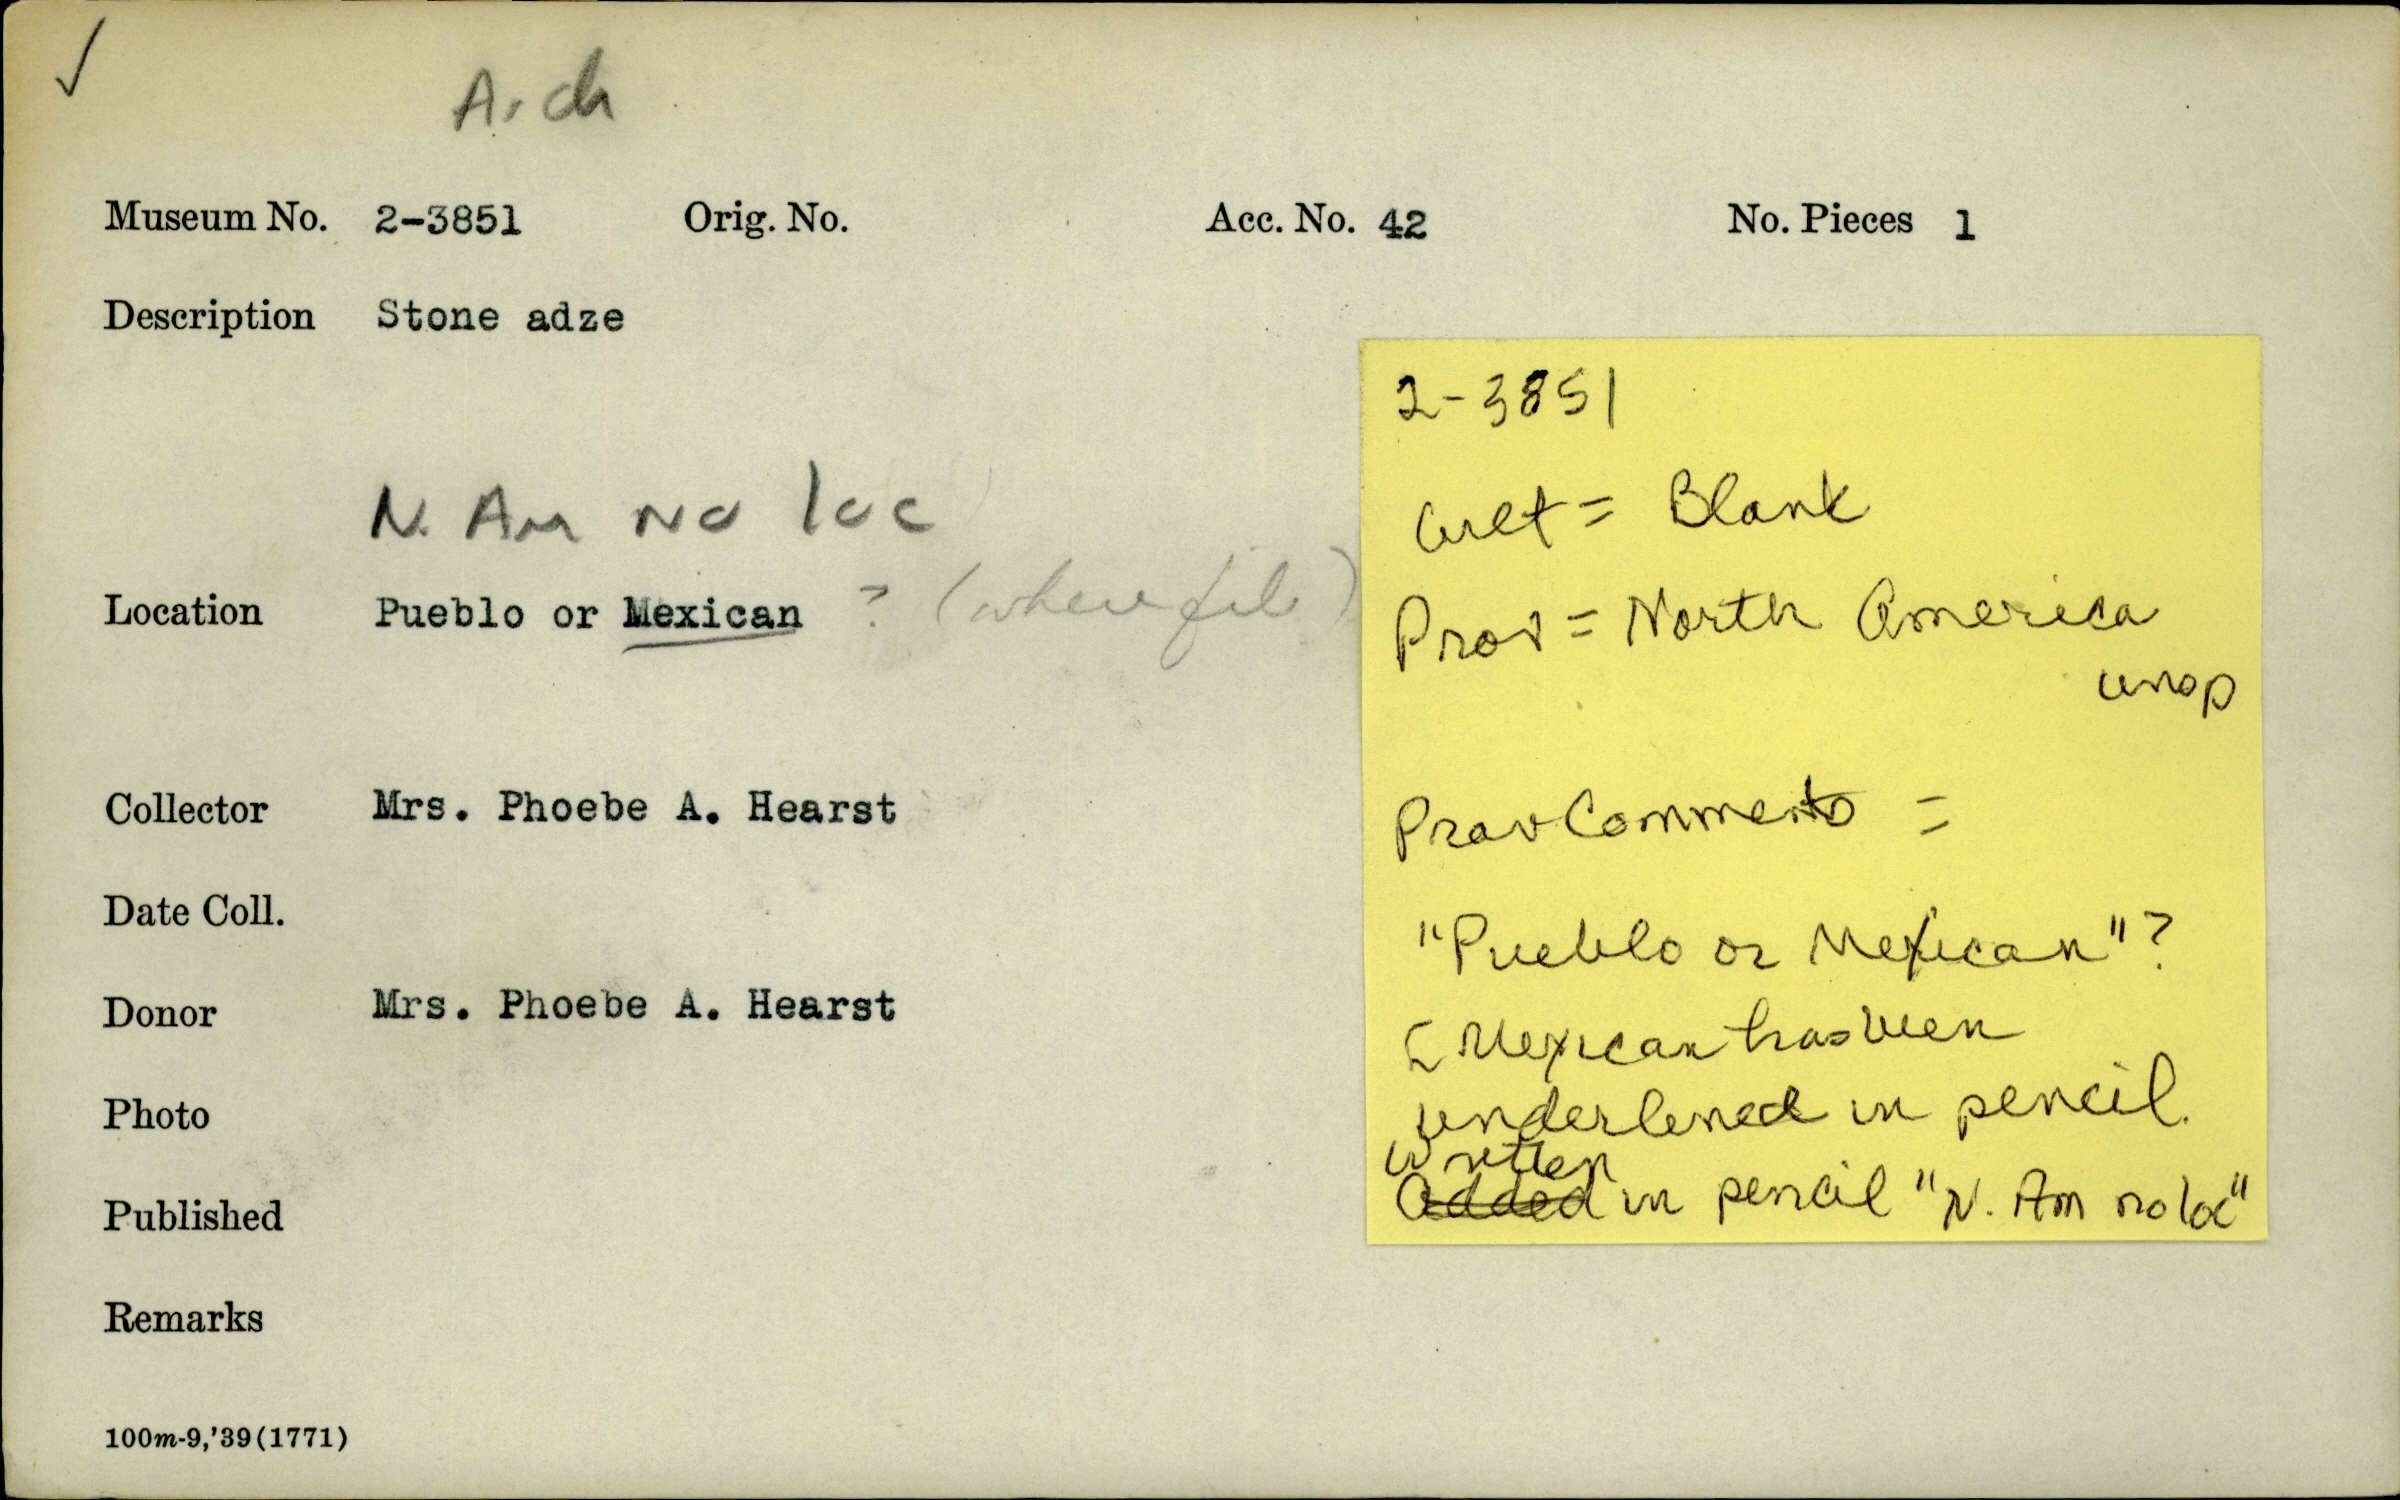 ✓ Arch
Museum No. 2-3851 Orig. No. Acc. No. 42 No. Pieces 1
Description Stone adze
N. Am no loc
Location Pueblo or Mexican ? (where file)
Collector Mrs. Phoebe A. Hearst
Date Coll.
Donor Mrs. Phoebe A. Hearst
Photo
Published
Remarks
100m-9,'39(1771)
2-3851
Cult = Blank
Prov = North America
Prov Comments =
"Pueblo or Mexican"?
[Mexican has been
underlined in pencil.
written
Added in pencil "N. Am no loc"